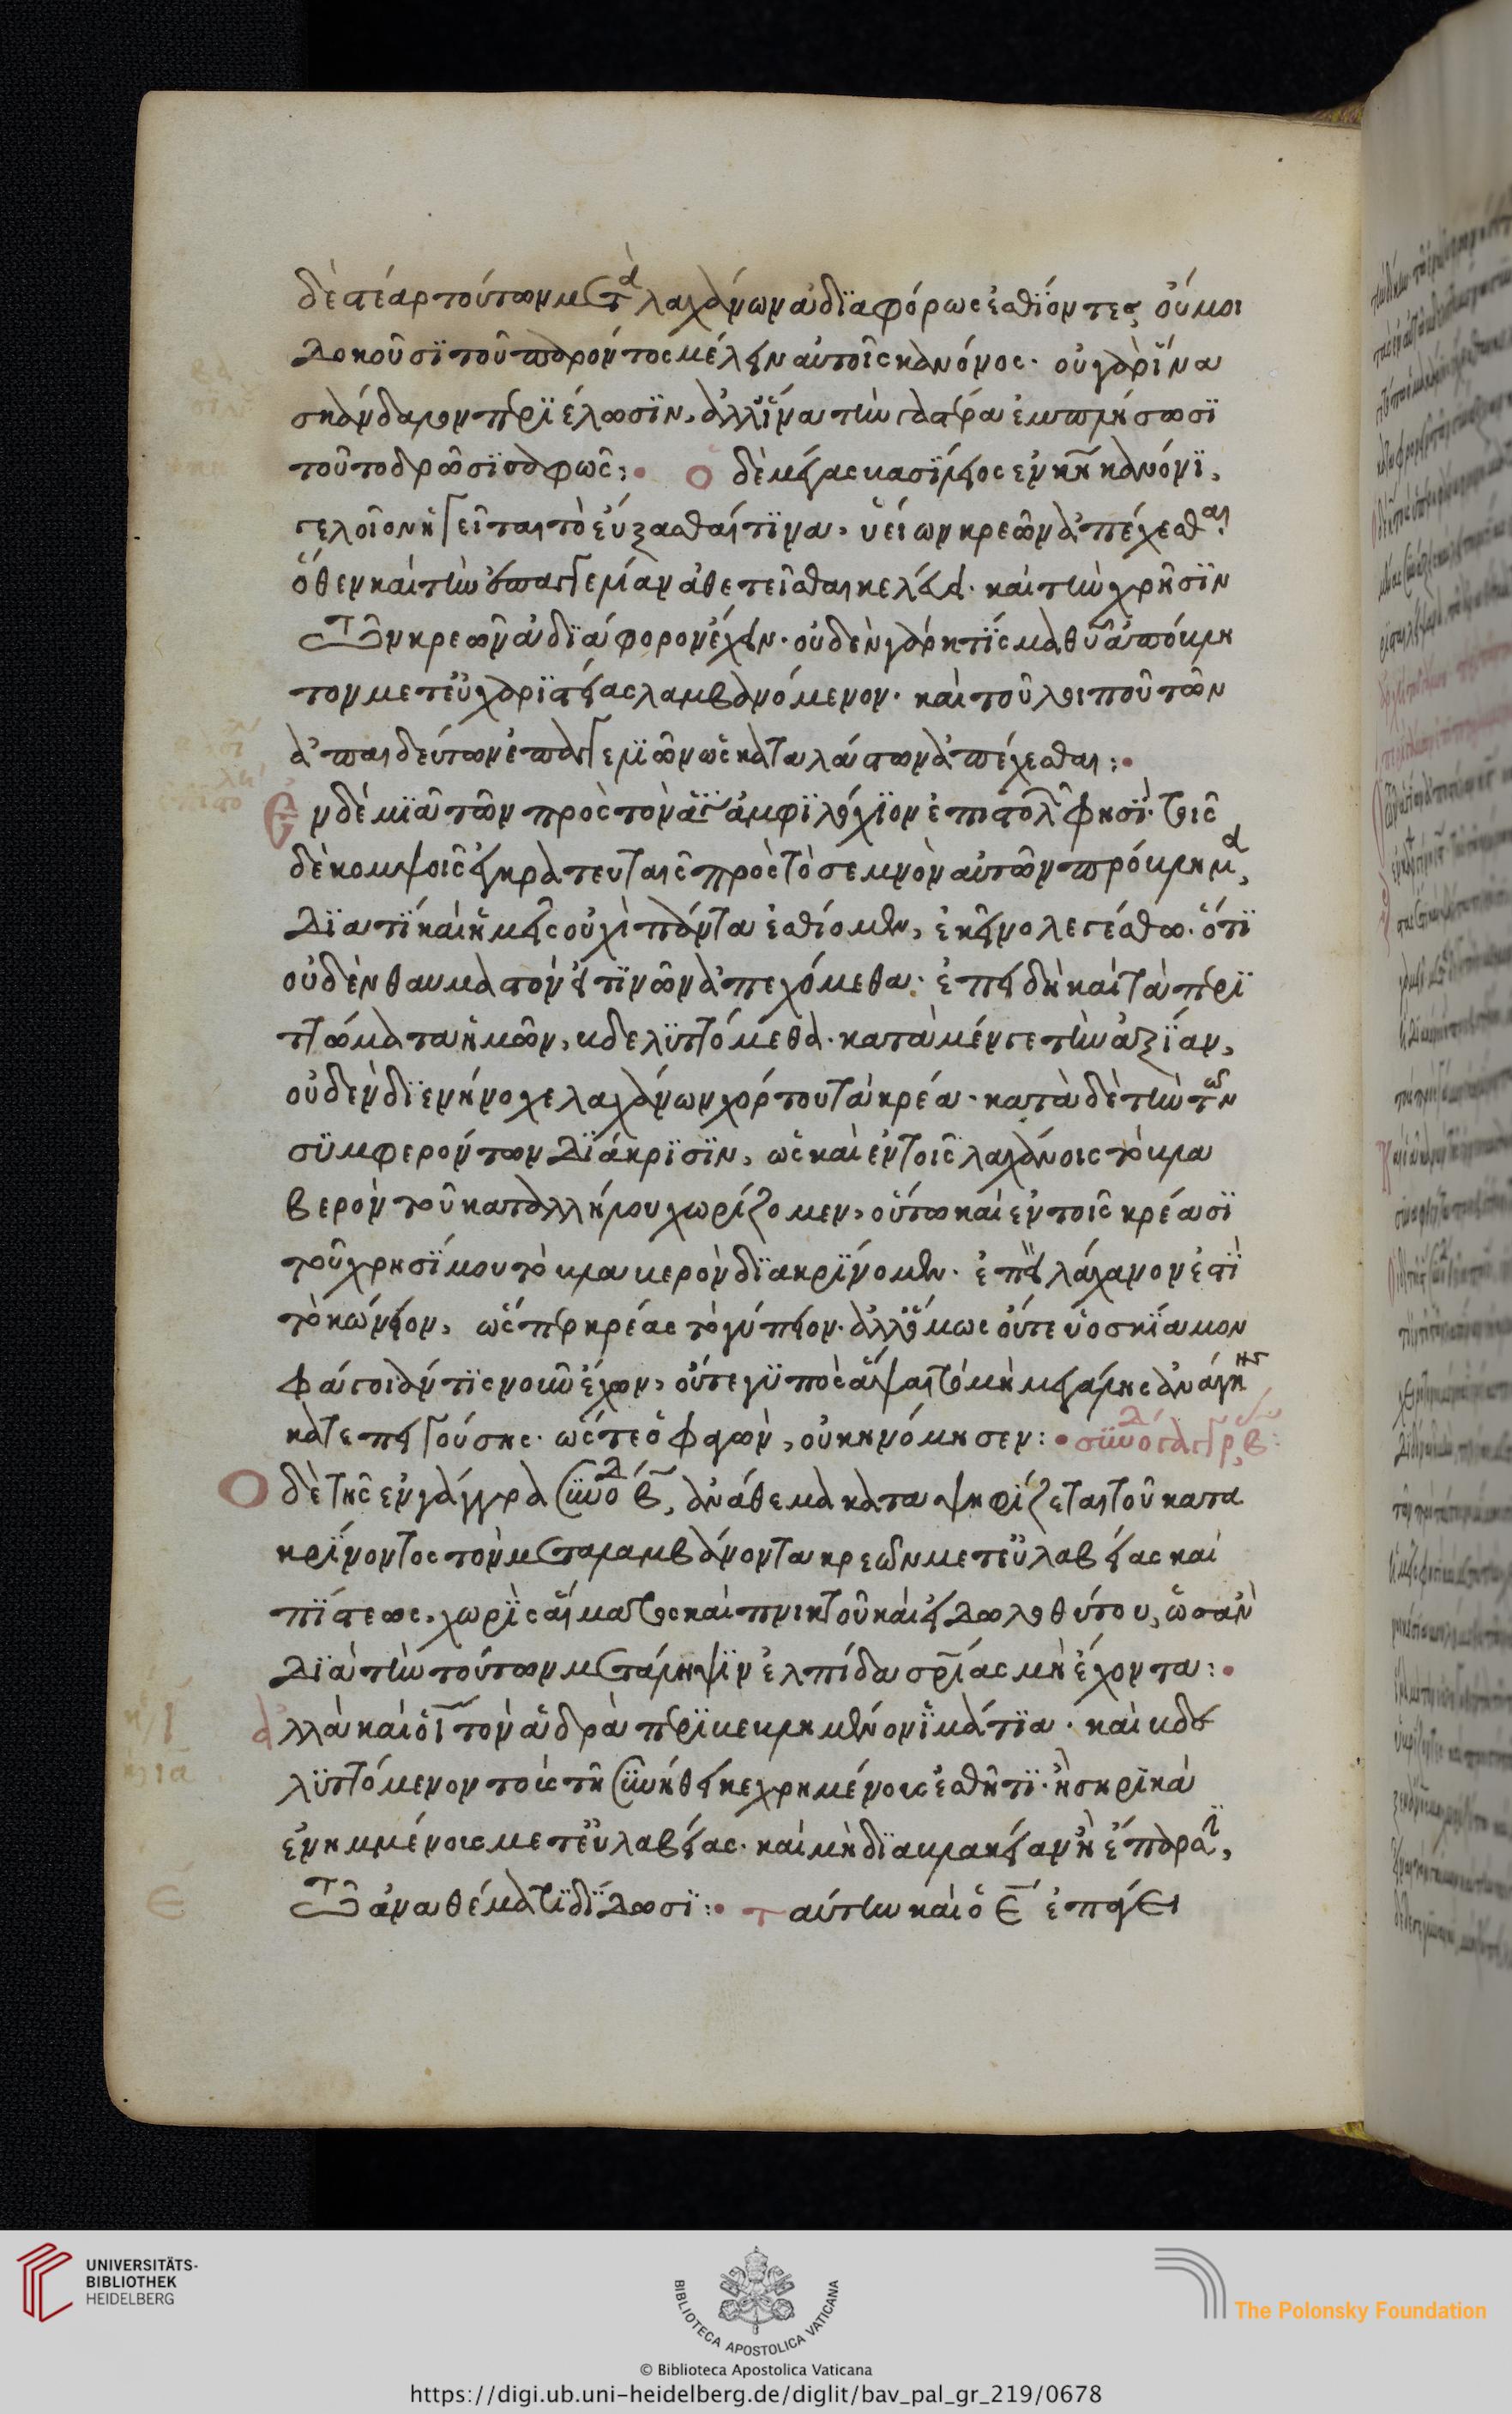 δὲ στέαρ τούτων μετὰ λαχάνων ἀδϊαφόρως ἐσθΐοντες, οὔ μοι
δοκοῦσϊ τοῦ παρόντος μέλειν αὐτοῖς κανόνος· οὐ γὰρ ἵνα
σκάνδαλον περιέλωσϊν, ἀλλ' ἵνα τὴν γαστέρα ἐμπλήσωσϊ
τοῦτο δρῶσϊ σαφῶς: ὁ δὲ μέγας βασΐλειος ἐν κη κανόνϊ,
γελοῖον ἡγεῖται τὸ εὔξασθαί τϊνα, ὑείων κρεῶν ἀπέχεσθαι
ὅθεν καὶ τὴν ἐπαγγελίαν ἀθετεῖσθαι κελεύει· καὶ τὴν χρῆσϊν
τῶν κρεῶν ἀδϊάφορον ἔχειν· οὐδὲν γὰρ κτίσμα θῦ ἀπόβλη
τον μετ' εὐχαρϊστίας λαμβανόμενον· καὶ τοῦ λοιποῦ τῶν
ἀπαιδεύτων ἐπαγγελϊῶν ὡς καταγελάστων ἀπέχεσθαι:
Εν δὲ μϊᾶ τῶν πρὸς τὸν ἅγ ἀμφϊλόχϊον ἐπιστολ φησϊ· τοῖς
δὲ κομψοῖς ἐγκρατευταῖς πρὸς τὸ σεμνὸν αὐτῶν πρόβλημα,
Δϊατὶ καὶ ἡμεῖς οὐχὶ πάντα ἐσθίομεν, ἐκεῖνο λεγέσθω· ὅτϊ
οὐδὲν θαυμαστὸν εἴ τϊνων ἀπεχόμεθα· ἐπειδὴ καὶ τὰ περϊ
ττώματα ἡμῶν, βδελϋττόμεθα· κατὰ μέν γε τὴν ἀξΐαν,
οὐδὲν δϊενήνοχε λαχάνων χόρτου τὰ κρέα· κατὰ δὲ τὴν τῶν
σϋμφερόντων Δϊάκρϊσϊν, ὡς καὶ ἐν τοῖς λαχάνοις τὸ βλα
βερὸν τοῦ καταλλήλου χωρίζομεν, οὕτω καὶ ἐν τοῖς κρέασϊ
τοῦ χρησΐμου τὸ βλαβερὸν δϊακρΐνομεν· ἐπεὶ λάχανον ἐστὶ
τὸ κώνειον, ὥσπερ κρέας τὸ γύπειον· ἀλλ' ὅμως οὔτε ὑοσκΰαμον
φάγοι ἄν τϊς νοῦν ἔχων, οὔτε γϋπὸς ἅψαιτο μὴ μεγάλης ἀνάγκης
κατεπειγούσης· ὥστε ὁ φαγὼν, οὐκ ἠνόμησεν: σϋνο
Ο δὲ τῆς ἐν γάγγρα σϋνο β, ἀνάθεμα καταψηφίζεται τοῦ κατα
κρΐνοντος τὸν μεταλαμβάνοντα κρεῶν μετ' εὐλαβείας καὶ
πΐστεως, χωρϊς αἵματος καὶ πνικτοῦ καὶ εἰδωλοθύτου, ὡσὰν
Δϊὰ τὴν τούτων μετάληψϊν ἐλπίδα σρίας μὴ ἔχοντα:
ἀλλὰ καὶ ὁ ι τὸν ἄνδρα περϊβεβλημένον ϊμάτϊα· καὶ βδε
λϋττόμενον τοὺς τῆ σϋνήθει κεχρημένους ἐσθῆτϊ· ἢ σηρϊκὰ
ἐνημμένοις μετ' εὐλαβείας· καὶ μὴ δϊὰ βλακείαν ἢ ἔπαρσϊ,
τῶ ἀναθέματϊ δΐδωσϊ: ταύτην καὶ ὁ ε ἐπάγει
ε
UNIVERSITÄTS-
BIBLIOTHEK
HEIDELBERG
BIBLIOTECA APOSTOLICA VATICANA
The Polonsky Foundation
© Biblioteca Apostolica Vaticana
https://digi.ub.uni-heidelberg.de/diglit/bav_pal_gr_219/0678